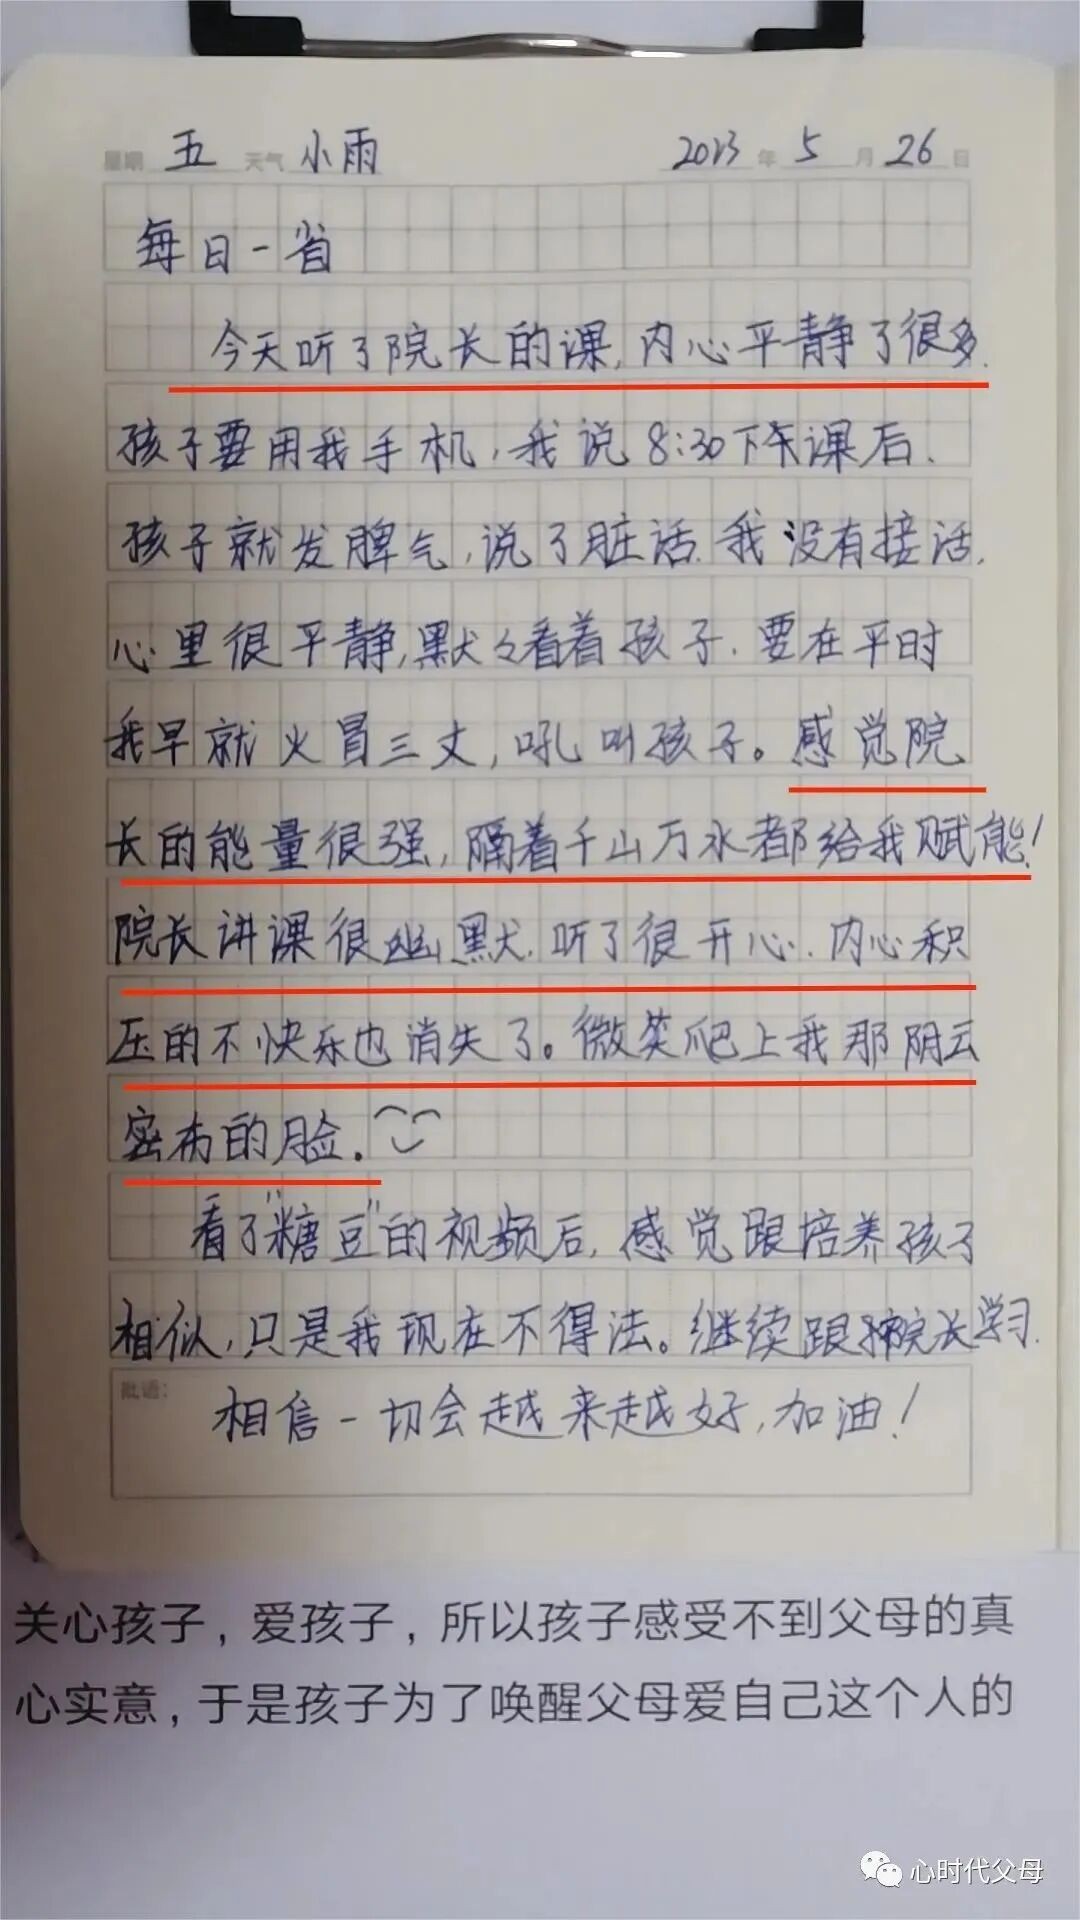 星期 五 天气 小雨 2023 年 5 月 26 日
每日一省
今天听了院长的课,内心平静了很多.
孩子要用我手机,我说8:30下课后.
孩子就发脾气,说了脏话.我没有接话.
心里很平静,默々看着孩子.要在平时
我早就火冒三丈,吼叫孩子。感觉院
长的能量很强,隔着千山万水都给我赋能!
院长讲课很幽默.听了很开心.内心积
压的不快乐也消失了。微笑爬上我那阴云
密布的脸.
看了"糖豆"的视频后,感觉跟培养孩子
相似,只是我现在不得法。继续跟院长学习.
批语:
相信一切会越来越好,加油!
关心孩子，爱孩子，所以孩子感受不到父母的真
心实意，于是孩子为了唤醒父母爱自己这个人的
心时代父母